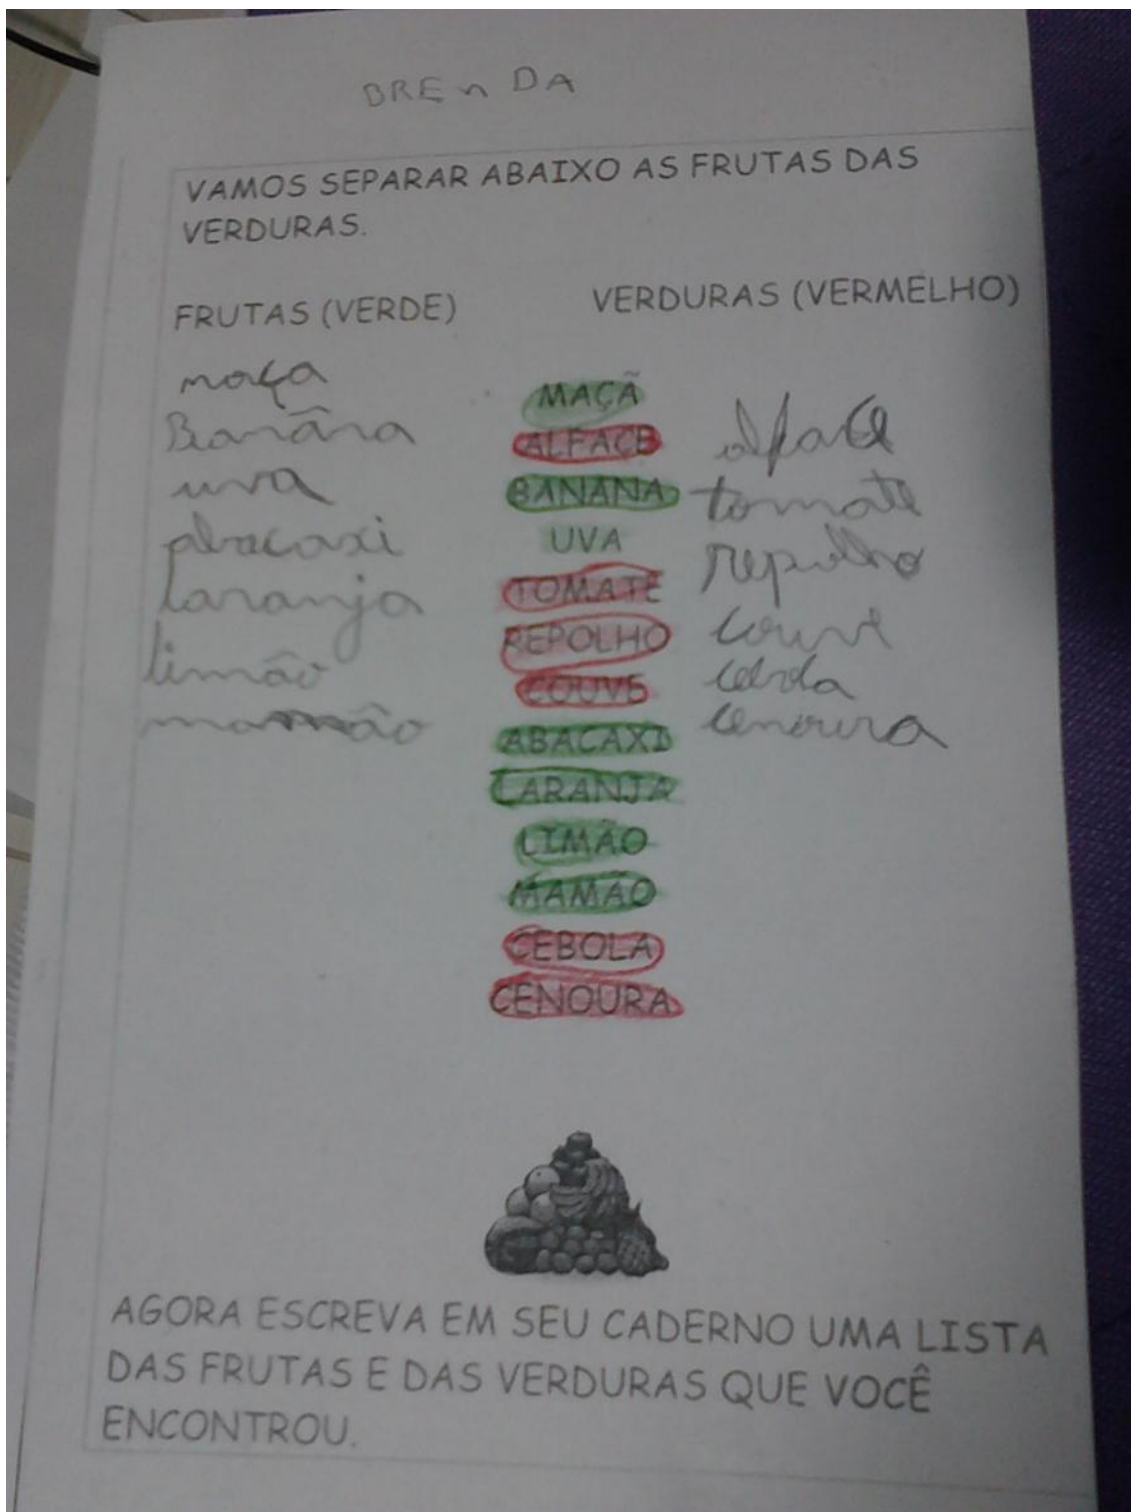 BREnDA
VAMOS SEPARAR ABAIXO AS FRUTAS DAS
VERDURAS.
FRUTAS (VERDE)
VERDURAS (VERMELHO)
maça
Banãna
uva
abacaxi
laranja
limão
mamão
MAÇÃ
ALFACE
BANANA
UVA
TOMATE
REPOLHO
COUVE
ABACAXI
LARANJA
LIMÃO
MAMÃO
CEBOLA
CENOURA
alface
tomate
repolho
couve
cebola
cenoura
AGORA ESCREVA EM SEU CADERNO UMA LISTA
DAS FRUTAS E DAS VERDURAS QUE VOCÊ
ENCONTROU.